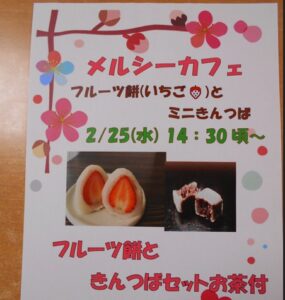 メルシーカフェ
フルーツ餅(いちご🍓)と
ミニきんつば
2/25(水) 14：30頃～
フルーツ餅と
きんつばセットお茶付